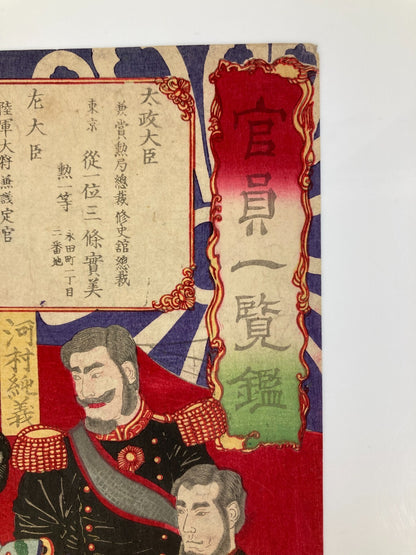 官員一覧鑑
太政大臣
兼賞勲局總裁 修史館總裁
東京 從一位三條實美
勲一等 永田町一丁目
二番地
左大臣
陸軍大将兼議定官
河村純義